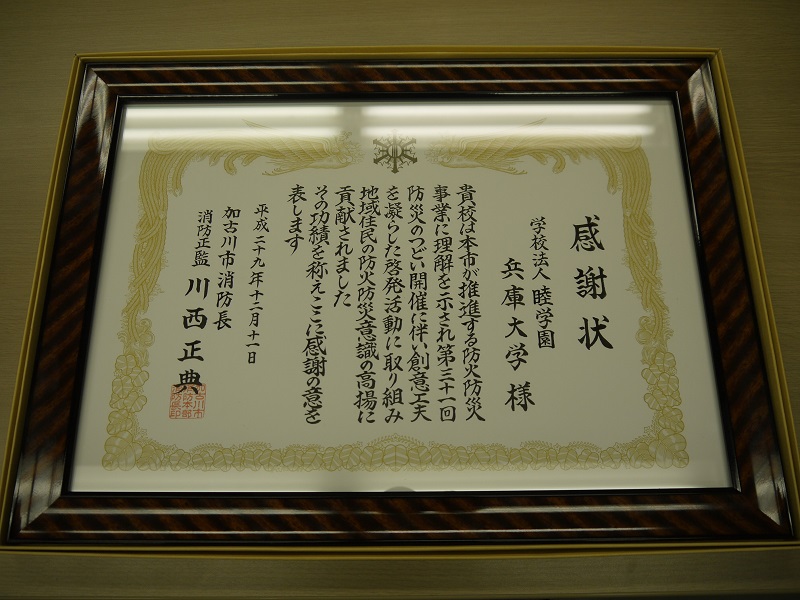 感謝状
学校法人 睦学園
兵庫大学 様
貴校は本市が推進する防火防災
事業に理解を示され第三十一回
防災のつどい開催に伴い創意工夫
を凝らした啓発活動に取り組み
地域住民の防火防災意識の高揚に
貢献されました
その功績を称えここに感謝の意を
表します
平成二十九年十二月十一日
加古川市消防長
消防正監 川西正典
加古川市
消防本部
消防長印